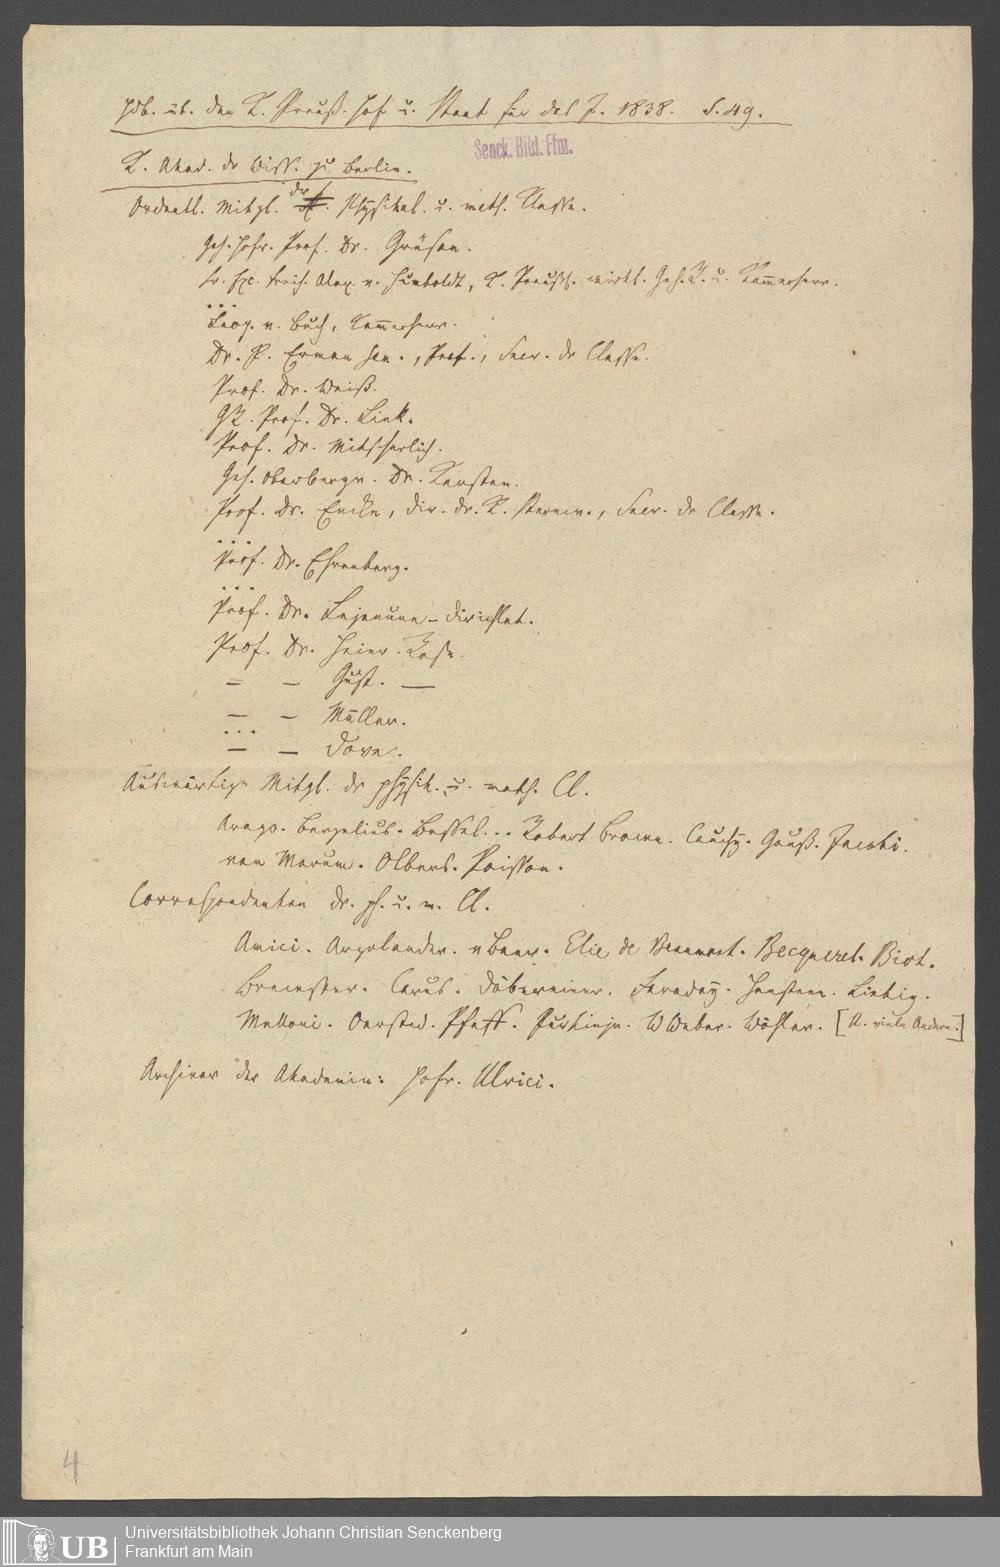 Hdb. üb. den K. Preuß. Hof u. Staat für das J. 1838. S. 49.
Senck. Bibl. Ffm.
K. Akad. dr Wiss. zu Berlin.
Ordentl. Mitgl. dr physikal. u. math. Klasse.
Geh. Hofr. Prof. Dr. Grüson.
Sr. Exc. Freih. Alex. v. Humboldt, K. Preuß. wirkl. Geh. R. u. Kammerherr.
...
Leop. v. Buch, Kammerherr.
Dr. P. Erman sen., Prof., Secr. dr Classe.
Prof. Dr. Weiß.
GR. Prof. Dr. Link.
Prof. Dr. Mitscherlich.
Geh. Oberbergr. Dr. Karsten.
Prof. Dr. Encke, Dir. dr. K. Sternw., Secr. dr Classe.
...
Prof. Dr. Ehrenberg.
...
Prof. Dr. Lejeune-Dirichlet.
Prof. Dr. Heinr. Rose.
— — Gust. —
— — Müller.
...
— — Dove.
Auswärtige Mitgl. dr physik. u. math. Cl.
Arago. Berzelius. Bessel... Robert Brown. Cauchy. Gauß. Jacobi.
van Marum. Olbers. Poisson.
Correspondenten dr. ph. u. m. Cl.
Amici. Argelander. v Baer. Elie de Beaumont. Becquerel. Biot.
Brewster. Carus. Döbereiner. Faraday. Hansteen. Liebig.
Melloni. Oersted. Pfaff. Purkinje. W Weber. Wöhler. [U. viele Andere.]
Archivar der Akademie: Hofr. Ulrici.
4
UB
Universitätsbibliothek Johann Christian Senckenberg
Frankfurt am Main